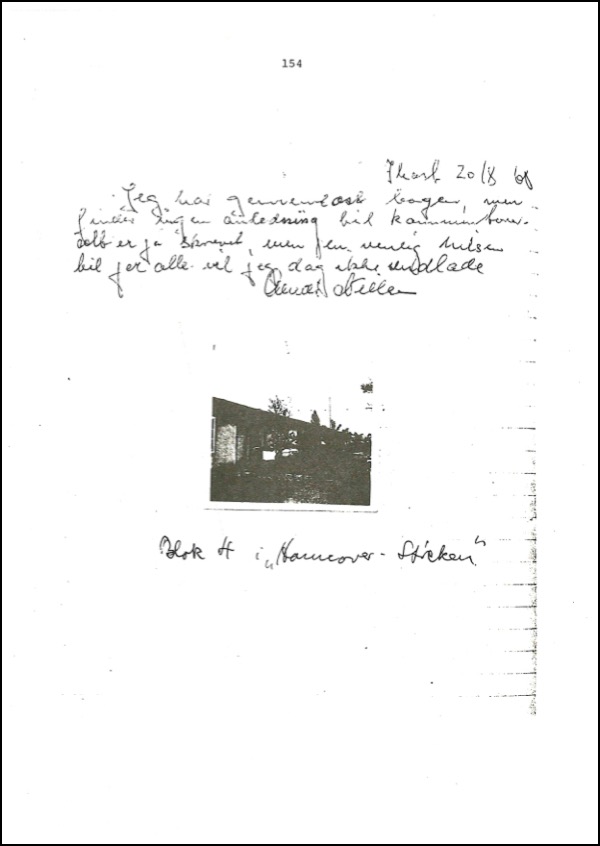 154
Thorst 20/8 68
Jeg har gennemlæst bogen, men
finder ingen anledning til kommentarer.
er jo skrevet, men en venlig hilsen
til jer alle vil jeg dog ikke undlade
Blok 4 i „Hannover - Stöcken"